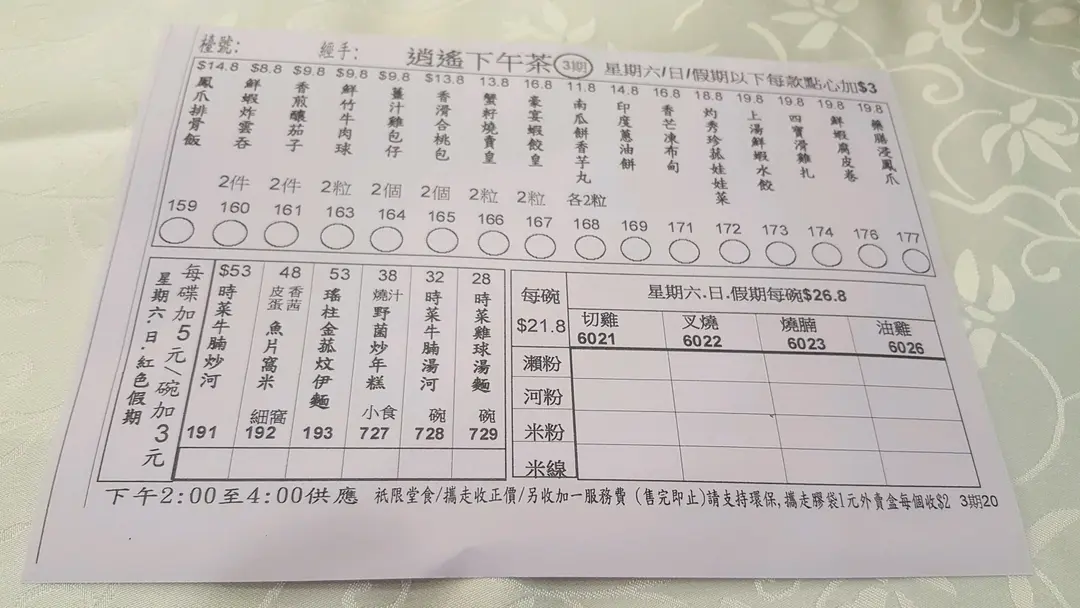 檯號: 經手: 逍遙下午茶 3期 星期六/日/假期以下每款點心加$3
$14.8 鳳爪排骨飯 159
$8.8 鮮蝦炸雲吞 2件 160
$9.8 香煎釀茄子 2件 161
$9.8 鮮竹牛肉球 2粒 163
$9.8 薑汁雞包仔 2個 164
$13.8 香滑合桃包 2個 165
13.8 蟹籽燒賣皇 2粒 166
16.8 豪宴蝦餃皇 2粒 167
11.8 南瓜餅香芋丸 各2粒 168
14.8 印度蔥油餅 169
16.8 香芒凍布甸 171
18.8 灼秀珍菇娃娃菜 172
19.8 上湯鮮蝦水餃 173
19.8 四寶滑雞扎 174
19.8 鮮蝦腐皮卷 176
19.8 藥膳浸鳳爪 177
星期六.日.紅色假期
每碟加5元/碗加3元
$53 時菜牛腩炒河 191
48 皮蛋香茜魚片窩米 細窩 192
53 瑤柱金菇炆伊麵 193
38 燒汁野菌炒年糕 小食 727
32 時菜牛腩湯河 碗 728
28 時菜雞球湯麵 碗 729
每碗 $21.8
星期六.日.假期每碗$26.8
切雞 叉燒 燒腩 油雞
6021 6022 6023 6026
瀨粉
河粉
米粉
米線
下午2:00至4:00供應 祇限堂食/攜走收正價/另收加一服務費 (售完即止)請支持環保,攜走膠袋1元外賣盒每個收$2 3期20